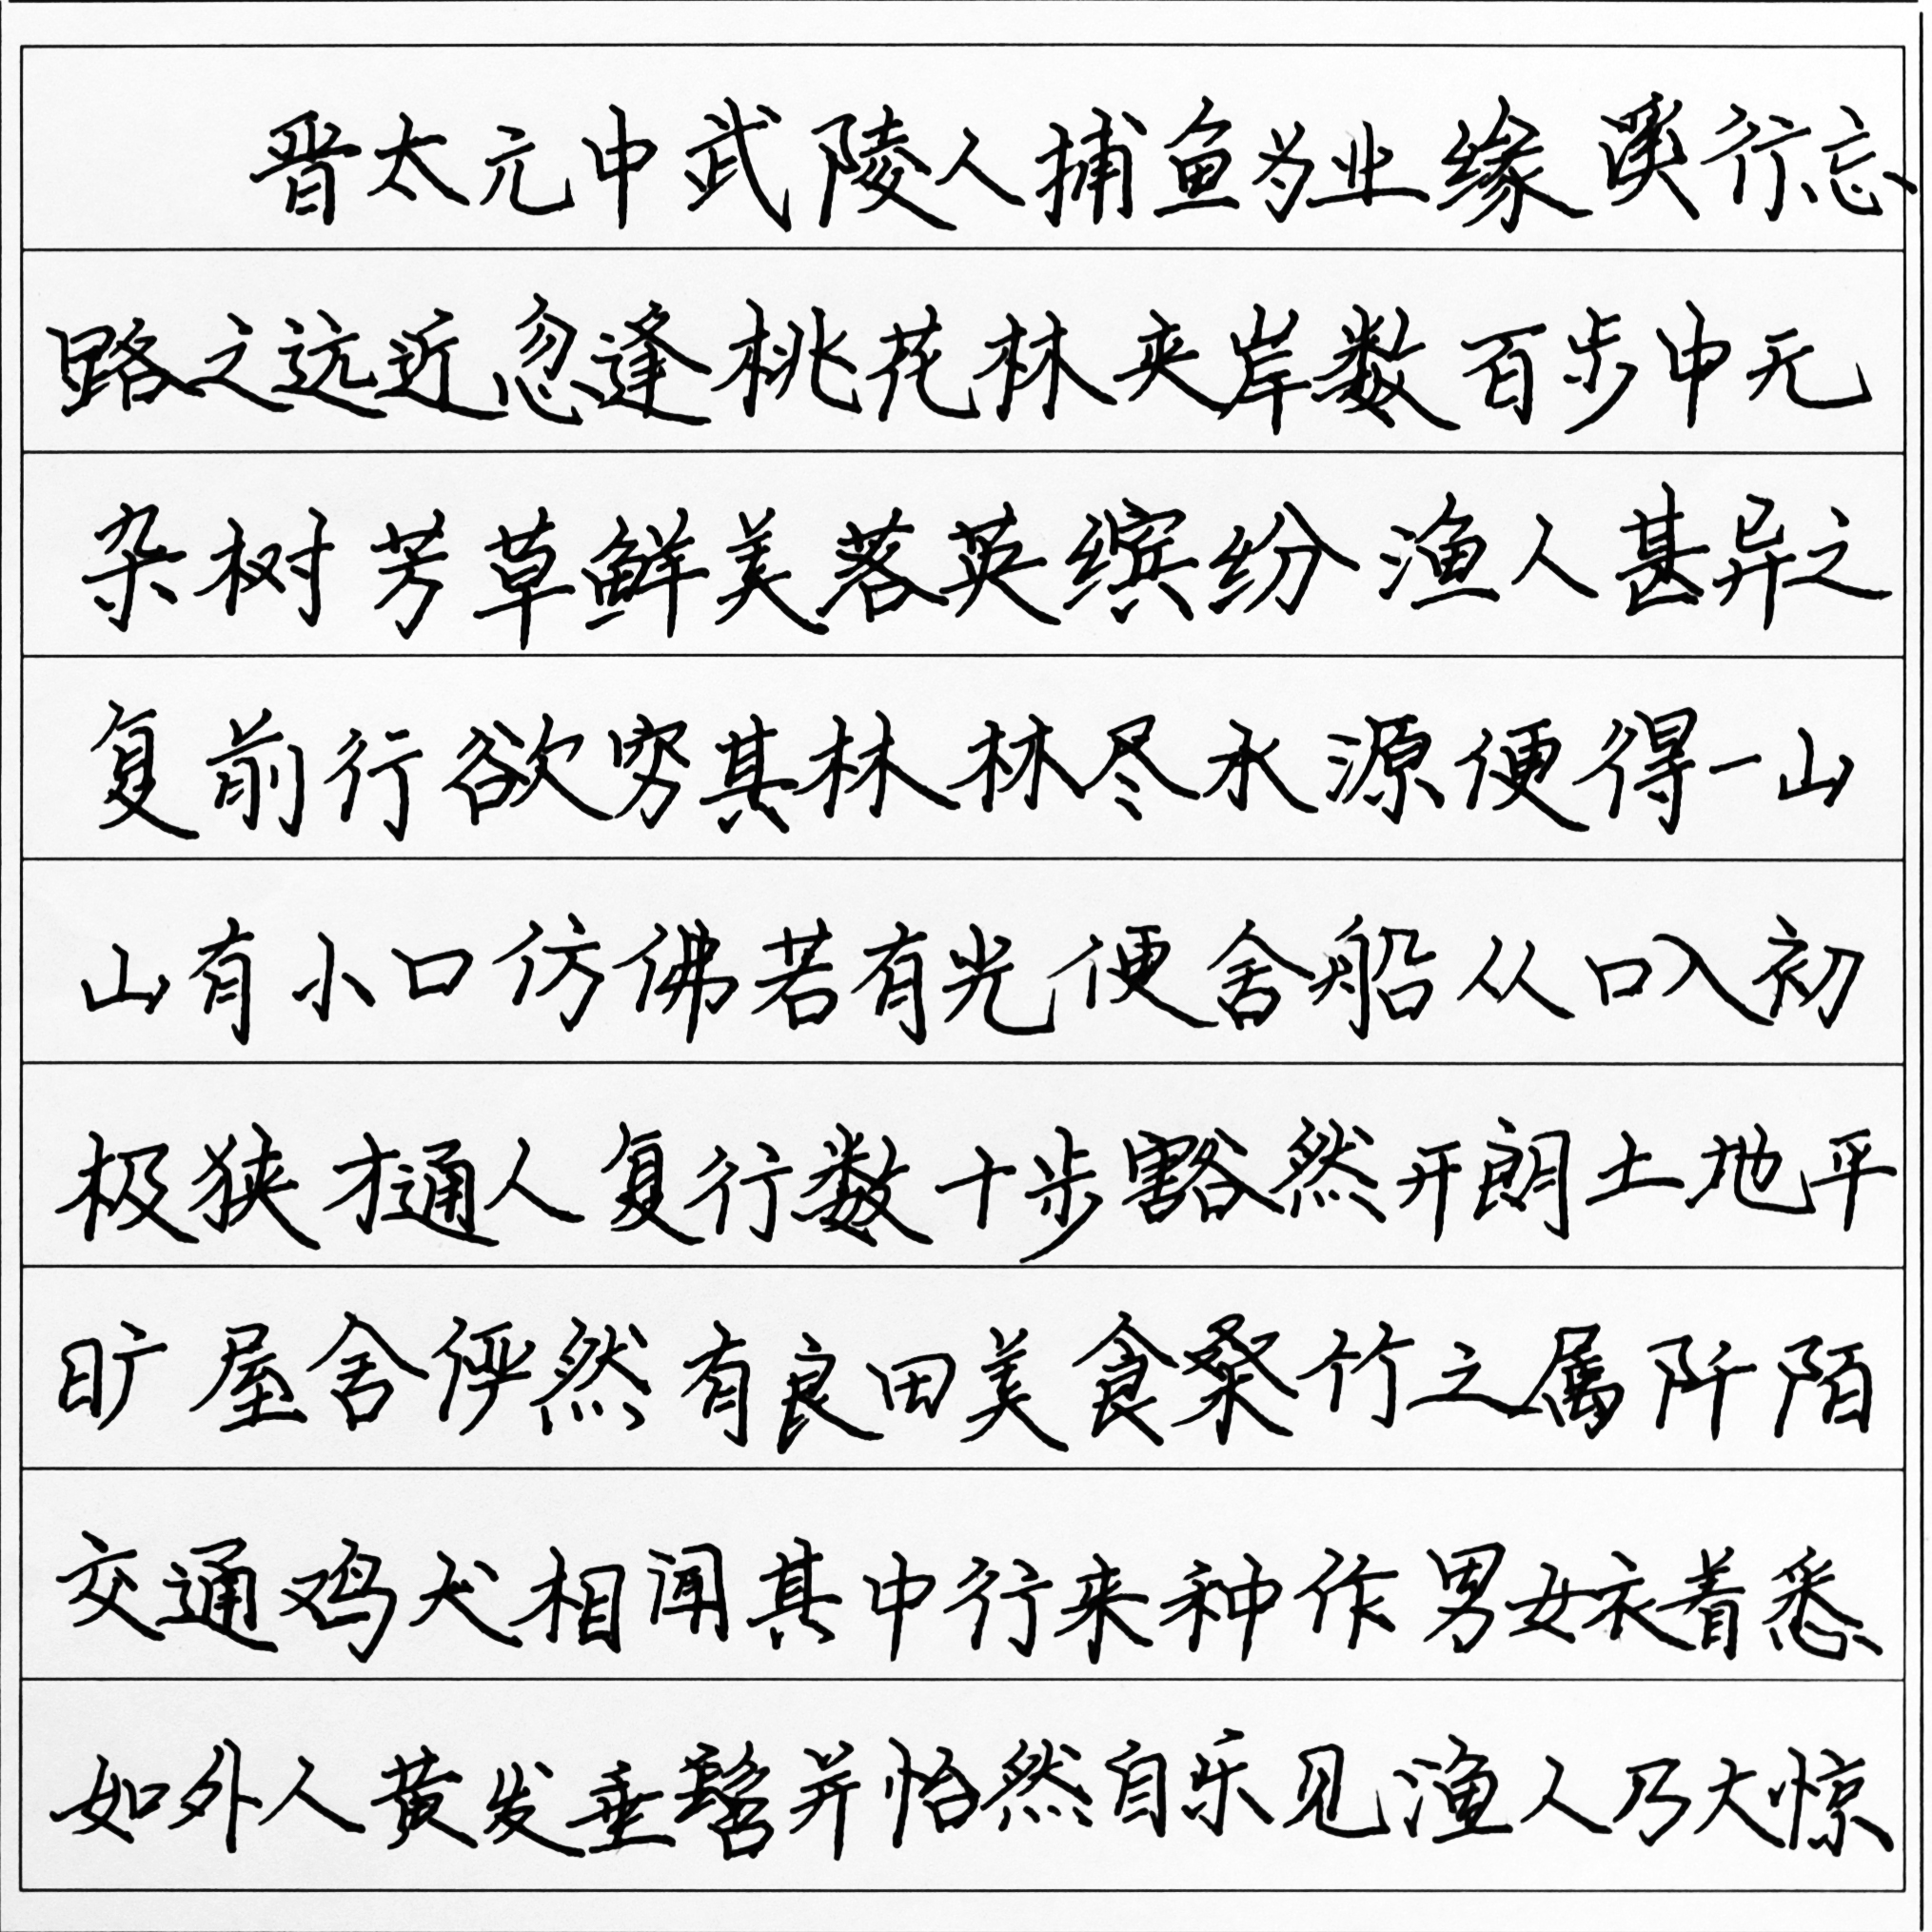 晋太元中武陵人捕鱼为业缘溪行忘
路之远近忽逢桃花林夹岸数百步中无
杂树芳草鲜美落英缤纷渔人甚异之
复前行欲穷其林林尽水源便得一山
山有小口仿佛若有光便舍船从口入初
极狭才通人复行数十步豁然开朗土地平
旷屋舍俨然有良田美食桑竹之属阡陌
交通鸡犬相闻其中行来种作男女衣着悉
如外人黄发垂髫并怡然自乐见渔人乃大惊